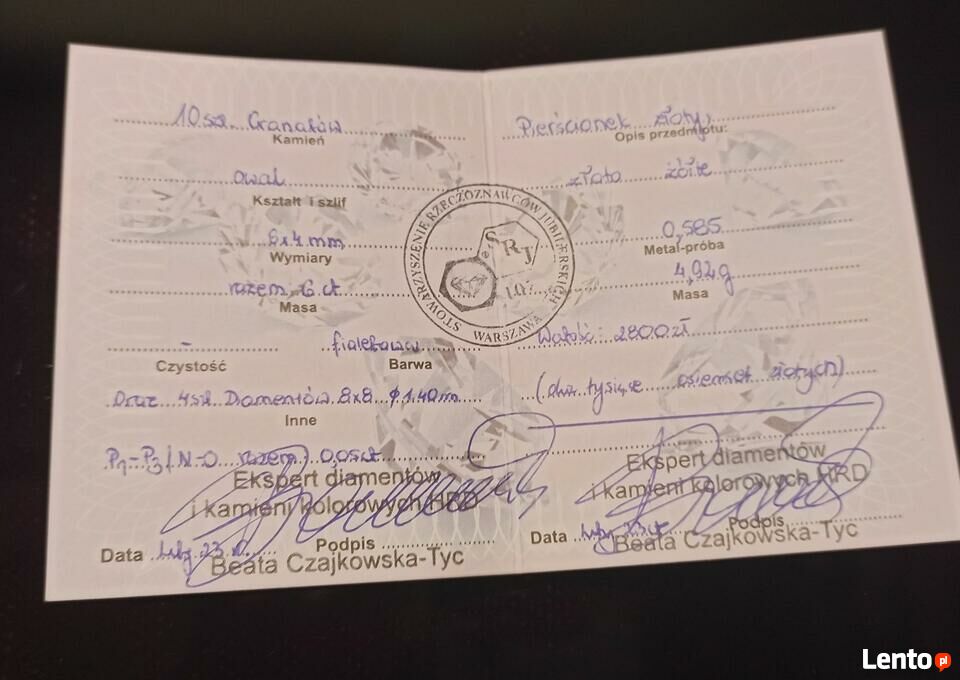 10 szt. Granatów
Kamień
owal
Kształt i szlif
6x4 mm
Wymiary
razem 6 ct
Masa
-
Czystość
fioletowa
Barwa
Oraz 4 szt. Diamentów 8x8 φ 1.40 m
Inne
P1-P3 / N-O razem 0,05ct
Ekspert diamentów
i kamieni kolorowych HRD
Data luty 23 r. Podpis
Beata Czajkowska-Tyc
Pierścionek złoty,
Opis przedmiotu:
złoto żółte
0,585
Metal-próba
4,92g
Masa
Wartość: 2800 zł
(dwa tysiące osiemset złotych)
Ekspert diamentów
i kamieni kolorowych HRD
Data luty 23 r. Podpis
Beata Czajkowska-Tyc
STOWARZYSZENIE RZECZOZNAWCÓW JUBILERSKICH
WARSZAWA
SRJ
Lento.pl